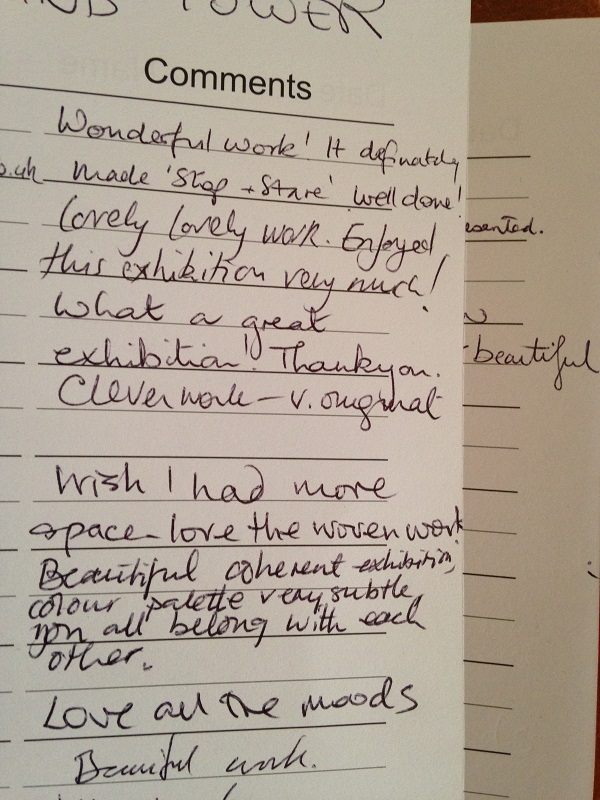 TOWER
Comments
Wonderful work! It definately
o.uk made 'Stop + Stare' well done!
Lovely lovely work. Enjoyed
esented.
this exhibition very much!
What a great
exhibition! Thankyou.
beautiful
Clever work – v. original
Wish I had more
space – love the woven work
Beautiful coherent exhibition,
colour palette very subtle,
you all belong with each
other.
Love all the moods
Beautiful work.